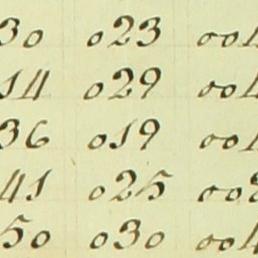 30 023 004
14 029 004
36 019 004
41 025
50 030 004